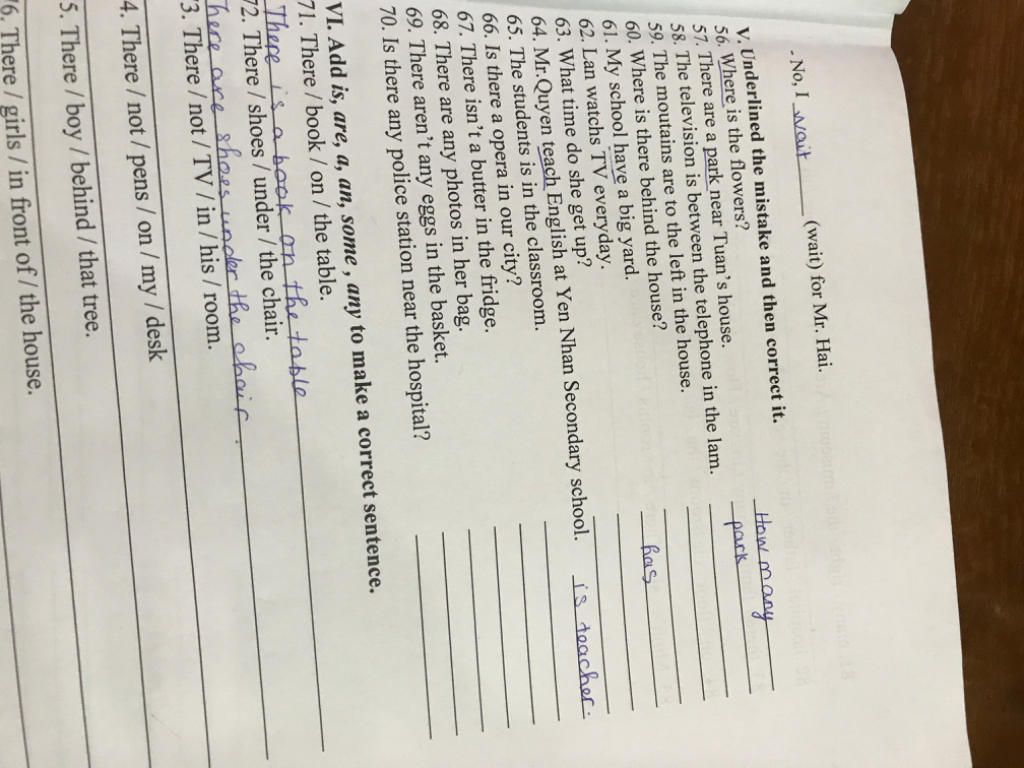 . No, I wait (wait) for Mr. Hai.
V. Underlined the mistake and then correct it.
56. Where is the flowers? How many
57. There are a park near Tuan's house. park
58. The television is between the telephone in the lam.
59. The moutains are to the left in the house.
60. Where is there behind the house?
61. My school have a big yard. has
62. Lan watchs TV everyday.
63. What time do she get up?
64. Mr.Quyen teach English at Yen Nhan Secondary school. is teacher.
65. The students is in the classroom.
66. Is there a opera in our city?
67. There isn't a butter in the fridge.
68. There are any photos in her bag.
69. There aren't any eggs in the basket.
70. Is there any police station near the hospital?
VI. Add is, are, a, an, some , any to make a correct sentence.
71. There / book / on / the table.
There is a book on the table
72. There / shoes / under / the chair.
There are shoes under the chair.
73. There / not / TV / in / his / room.
4. There / not / pens / on / my / desk
5. There / boy / behind / that tree.
6. There / girls / in front of / the house.